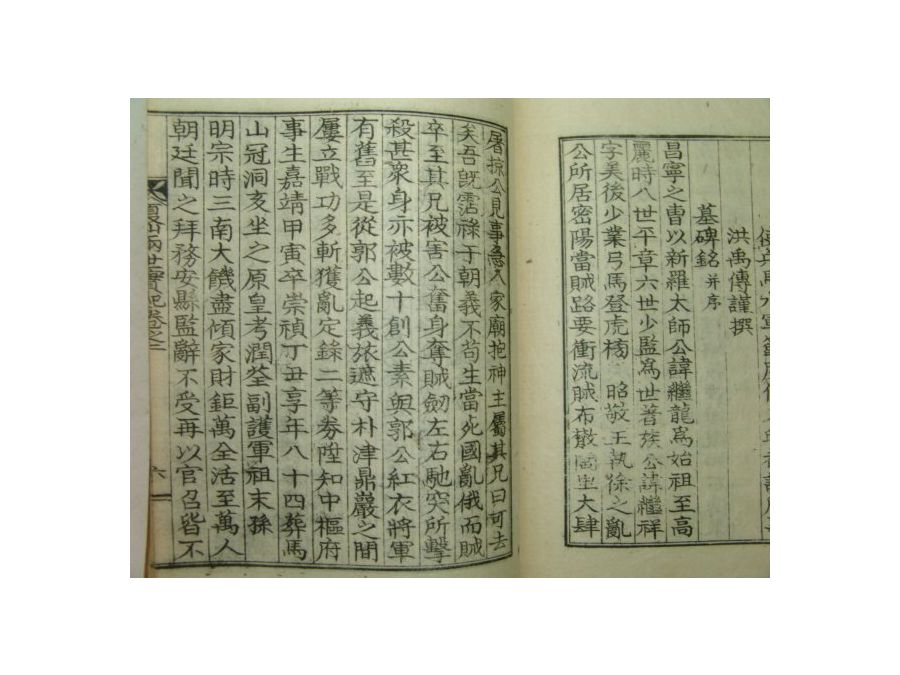 墓碑銘 并序
洪禹傳謹撰
昌寧之曺以新羅太師公諱繼龍爲始祖至高
麗時八世平章六世少監爲世著族公諱繼祥
字美後少業弓馬登虎榜 昭敬王執徐之亂
公所居密陽當賊路要衝流賊布散閭里大肆
屠掠公見事急入家廟抱神主屬其兄曰可去
矣吾旣霑祿于朝義不苟生當死國亂俄而賊
卒至其兄被害公奮身奪賊劒左右馳突所擊
殺甚衆身亦被數十創公素與郭公紅衣將軍
有舊至是從郭公起義旅遮守朴津鼎巖之間
屢立戰功多斬獲亂定錄二等券陞知中樞府
事生嘉靖甲寅卒崇禎丁丑享年八十四葬馬
山冠洞亥坐之原皇考潤荃副護軍祖末孫
明宗時三南大饑盡傾家財鉅萬全活至萬人
朝廷聞之拜務安縣監辭不受再以官召皆不
兩世實紀卷之二
六